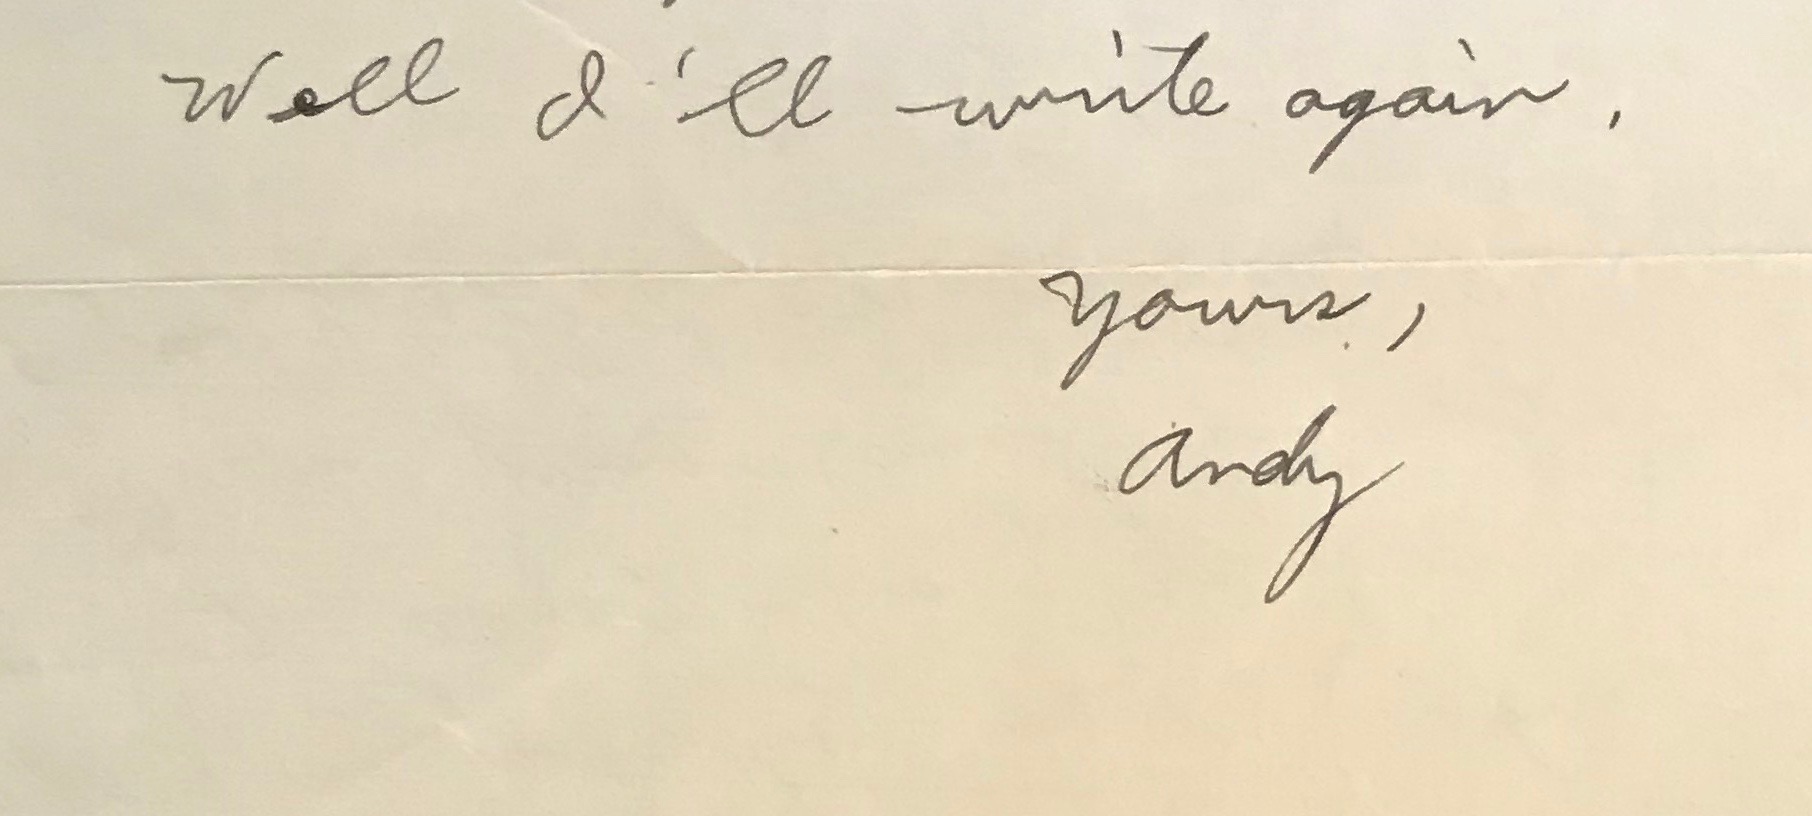 Well I'll write again.
Yours,
Andy